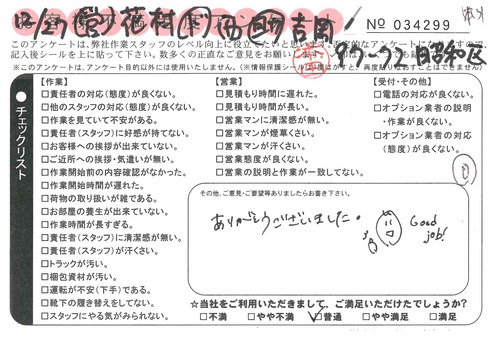 12/27
No 034299
このアンケートは、弊社作業スタッフのレベル向上に役立てたいと思います。
※このアンケートは、アンケート目的以外には使用いたしません。
チェックリスト
【作業】
□責任者の対応(態度)が良くない。
□他のスタッフの対応(態度)が良くない。
□作業を見ていて不安がある。
□責任者(スタッフ)に好感が持てない。
□お客様への挨拶が出来ていない。
□ご近所への挨拶・気遣いが無い。
□作業開始前の内容確認がなかった。
□作業開始時間が遅れた。
□荷物の取り扱いが雑である。
□お部屋の養生が出来ていない。
□作業時間が長すぎる。
□責任者(スタッフ)に清潔感が無い。
□責任者(スタッフ)が汗くさい。
□トラックが汚い。
□梱包資材が汚い。
□運転が不安(下手)である。
□靴下の履き替えをしてない。
□スタッフにやる気がみられない。
【営業】
□見積もり時間に遅れた。
□見積もり時間が長い。
□営業マンに清潔感が無い。
□営業マンが煙草くさい。
□営業マンが汗くさい。
□営業態度が良くない。
□営業の説明と作業が一致してない。
【受付・その他】
□電話の対応が良くない。
□オプション業者の説明
・作業が良くない。
□オプション業者の対応
(態度)が良くない。
その他、ご意見・ご要望等ありましたらお書き下さい。
ありがとうございました。
Good
job!
☆当社をご利用いただきまして、ご満足いただけたでしょうか?
□不満 □やや不満 ☑普通 □やや満足 □満足